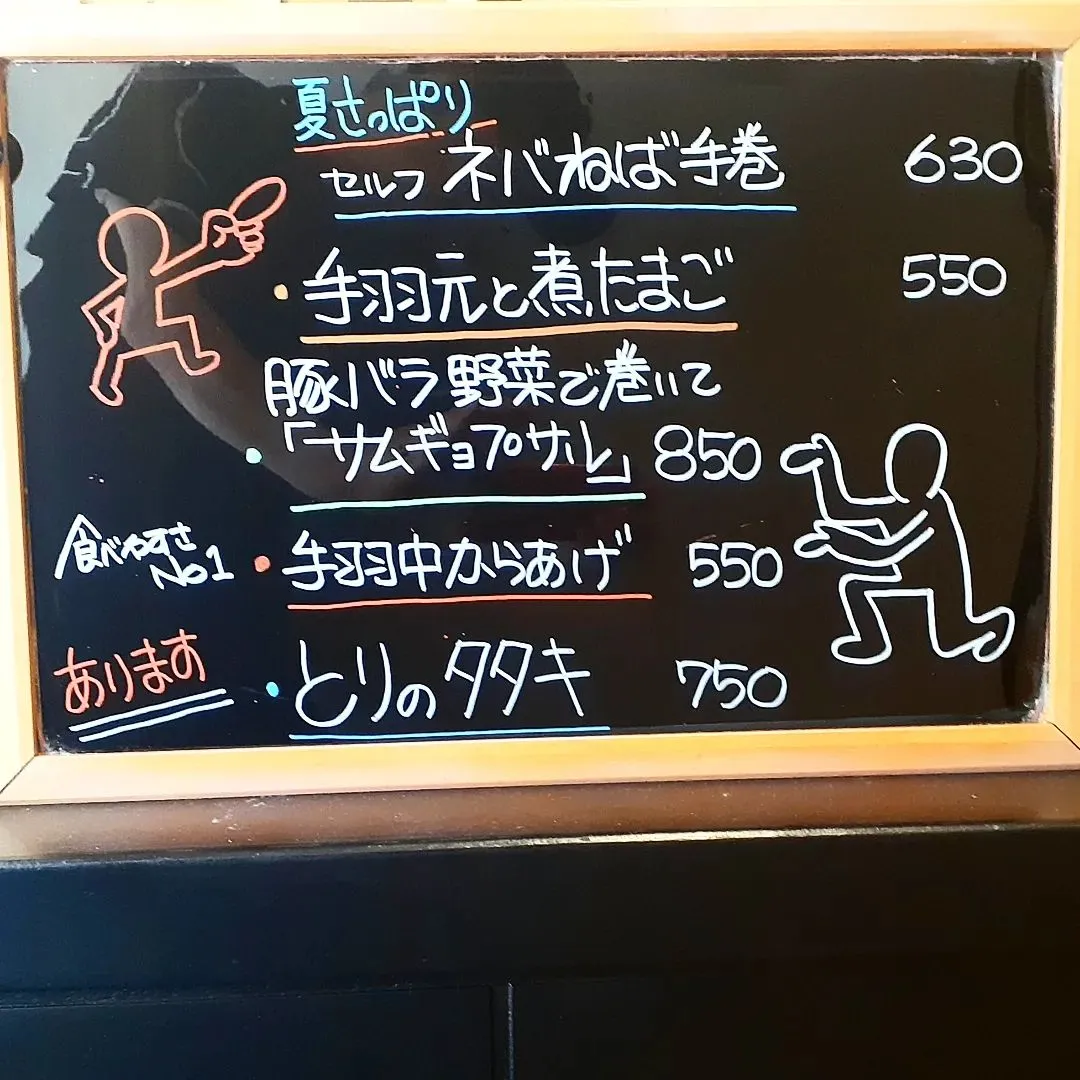 夏さっぱり
セルフ ネバねば手巻 630
・手羽元と煮たまご 550
豚バラ野菜で巻いて
・「サムギョプサル」 850
食べやすさ
No1
・手羽中からあげ 550
あります
・とりのタタキ 750